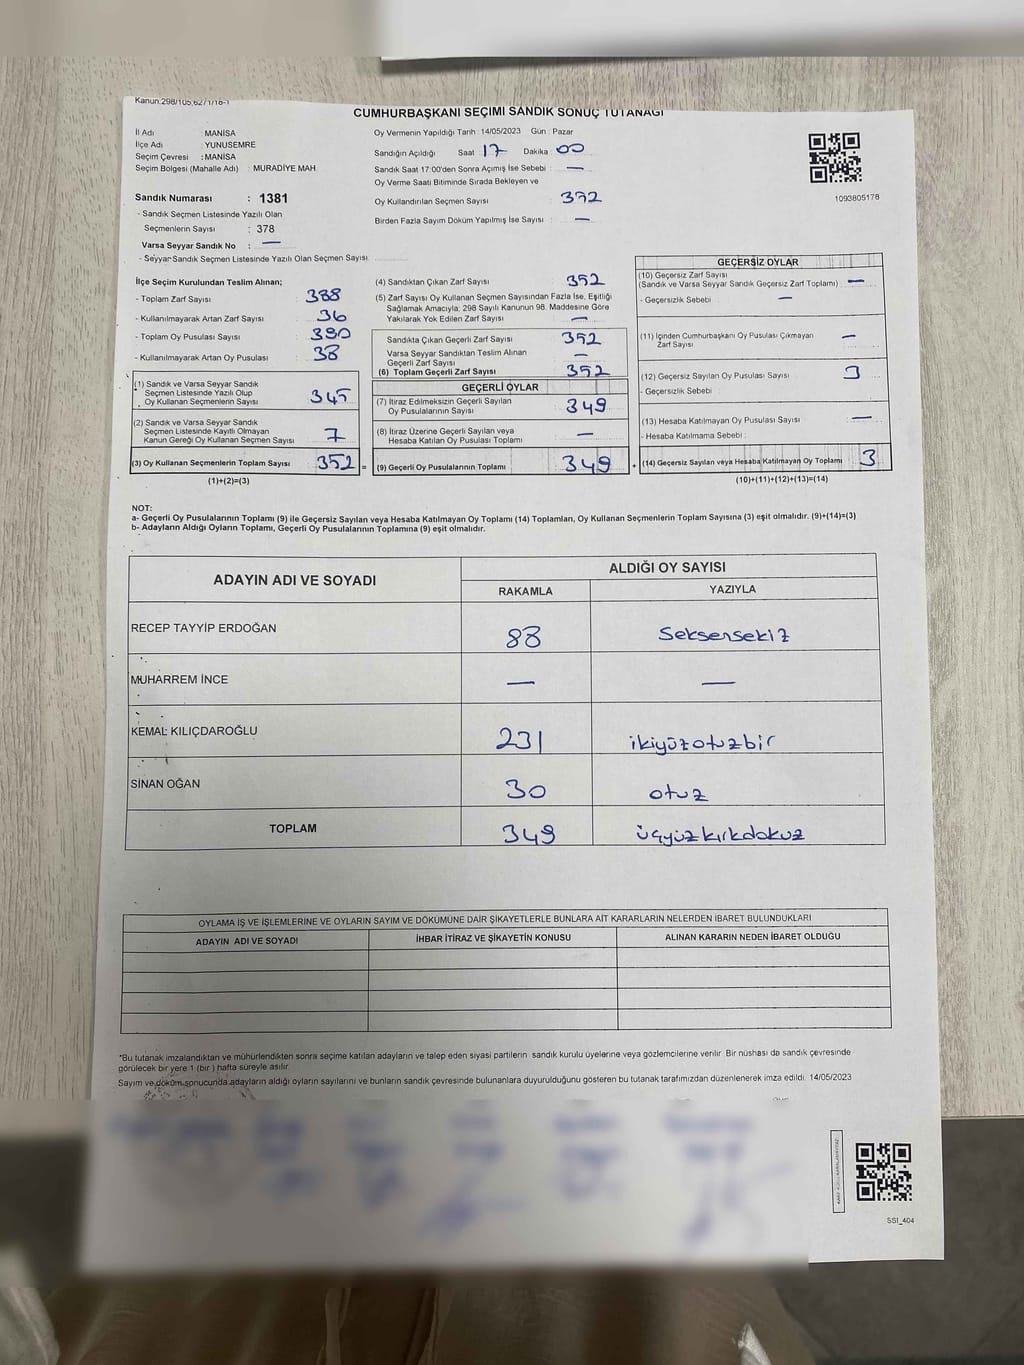 Kanun.298/105.6271/18-1
CUMHURBAŞKANI SEÇİMİ SANDIK SONUÇ TUTANAĞI
İl Adı : MANİSA
İlçe Adı : YUNUSEMRE
Seçim Çevresi : MANİSA
Seçim Bölgesi (Mahalle Adı) : MURADİYE MAH.
Sandık Numarası : 1381
- Sandık Seçmen Listesinde Yazılı Olan
Seçmenlerin Sayısı : 378
Varsa Seyyar Sandık No : —
- Seyyar Sandık Seçmen Listesinde Yazılı Olan Seçmen Sayısı
Oy Vermenin Yapıldığı Tarih : 14/05/2023 Gün : Pazar
Sandığın Açıldığı Saat 17 Dakika : 00
Sandık Saat 17:00'den Sonra Açımış İse Sebebi : —
Oy Verme Saati Bitiminde Sırada Bekleyen ve
Oy Kullandırılan Seçmen Sayısı
Birden Fazla Sayım Döküm Yapılmış İse Sayısı : —
1093805178
İlçe Seçim Kurulundan Teslim Alınan;
- Toplam Zarf Sayısı 388
- Kullanılmayarak Artan Zarf Sayısı 36
- Toplam Oy Pusulası Sayısı 390
- Kullanılmayarak Artan Oy Pusulası 38
(1) Sandık ve Varsa Seyyar Sandık
Seçmen Listesinde Yazılı Olup
Oy Kullanan Seçmenlerin Sayısı 345
(2) Sandık ve Varsa Seyyar Sandık
Seçmen Listesinde Kayıtlı Olmayan
Kanun Gereği Oy Kullanan Seçmen Sayısı 7
(3) Oy Kullanan Seçmenlerin Toplam Sayısı 352 =
(1)+(2)=(3)
(4) Sandıktan Çıkan Zarf Sayısı 352
(5) Zarf Sayısı Oy Kullanan Seçmen Sayısından Fazla İse, Eşitliği
Sağlamak Amacıyla; 298 Sayılı Kanunun 98. Maddesine Göre
Yakılarak Yok Edilen Zarf Sayısı —
Sandıkta Çıkan Geçerli Zarf Sayısı 352
Varsa Seyyar Sandıktan Teslim Alınan
Geçerli Zarf Sayısı —
(6) Toplam Geçerli Zarf Sayısı 352
GEÇERLİ OYLAR
(7) İtiraz Edilmeksizin Geçerli Sayılan
Oy Pusulalarının Sayısı 349
(8) İtiraz Üzerine Geçerli Sayılan veya
Hesaba Katılan Oy Pusulası Toplamı —
(9) Geçerli Oy Pusulalarının Toplamı 349 +
GEÇERSİZ OYLAR
(10) Geçersiz Zarf Sayısı
(Sandık ve Varsa Seyyar Sandık Geçersiz Zarf Toplamı) —
- Geçersizlik Sebebi : —
(11) İçinden Cumhurbaşkanı Oy Pusulası Çıkmayan
Zarf Sayısı —
(12) Geçersiz Sayılan Oy Pusulası Sayısı 3
- Geçersizlik Sebebi :
(13) Hesaba Katılmayan Oy Pusulası Sayısı —
- Hesaba Katılmama Sebebi :
(14) Geçersiz Sayılan veya Hesaba Katılmayan Oy Toplamı 3
(10)+(11)+(12)+(13)=(14)
NOT:
a- Geçerli Oy Pusulalarının Toplamı (9) ile Geçersiz Sayılan veya Hesaba Katılmayan Oy Toplamı (14) Toplamları, Oy Kullanan Seçmenlerin Toplam Sayısına (3) eşit olmalıdır. (9)+(14)=(3)
b- Adayların Aldığı Oyların Toplamı, Geçerli Oy Pusulalarının Toplamına (9) eşit olmalıdır.
ADAYIN ADI VE SOYADI ALDIĞI OY SAYISI
RAKAMLA YAZIYLA
RECEP TAYYİP ERDOĞAN 88 Seksensekiz
MUHARREM İNCE — —
KEMAL KILIÇDAROĞLU 231 ikiyüzotuzbir
SİNAN OĞAN 30 otuz
TOPLAM 349 üçyüzkırkdokuz
OYLAMA İŞ VE İŞLEMLERİNE VE OYLARIN SAYIM VE DÖKÜMÜNE DAİR ŞİKAYETLERLE BUNLARA AİT KARARLARIN NELERDEN İBARET BULUNDUKLARI
ADAYIN ADI VE SOYADI İHBAR İTİRAZ VE ŞİKAYETİN KONUSU ALINAN KARARIN NEDEN İBARET OLDUĞU
*Bu tutanak imzalandıktan ve mühürlendikten sonra seçime katılan adayların ve talep eden siyasi partilerin sandık kurulu üyelerine veya gözlemcilerine verilir. Bir nüshası da sandık çevresinde
görülecek bir yere 1 (bir) hafta süreyle asılır.
Sayım ve döküm sonucunda adayların aldığı oyların sayılarını ve bunların sandık çevresinde bulunanlara duyurulduğunu gösteren bu tutanak tarafımızdan düzenlenerek imza edildi. 14/05/2023
SS1_404